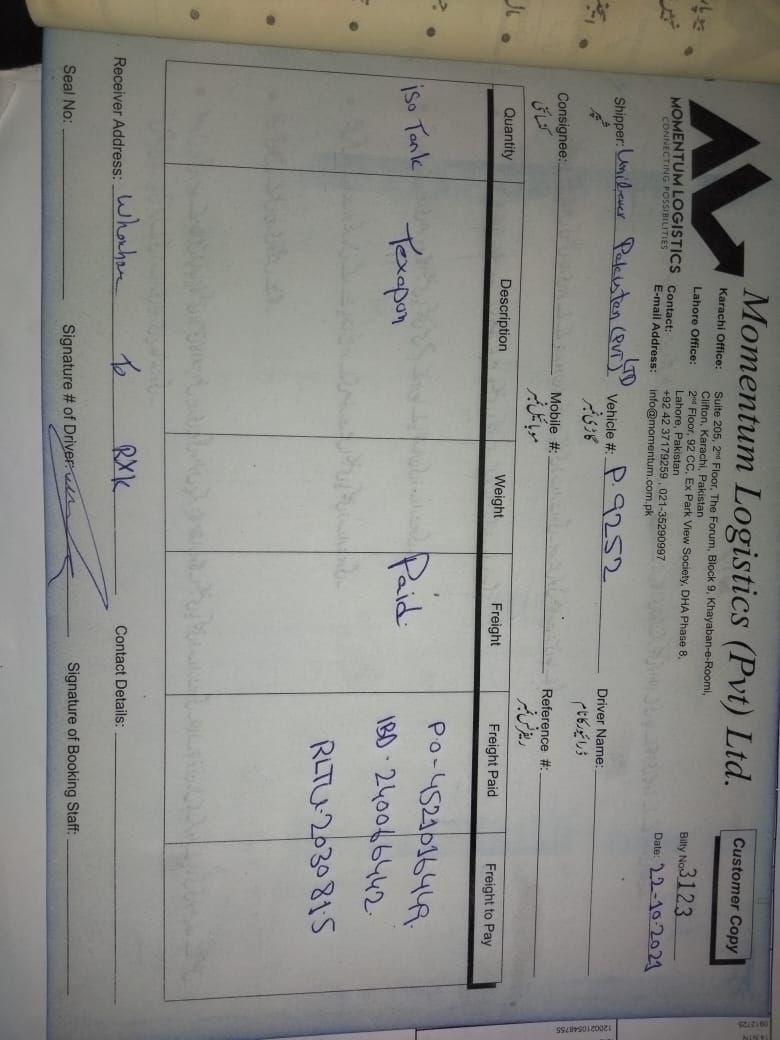 Momentum Logistics (Pvt) Ltd.
Customer Copy
MOMENTUM LOGISTICS
CONNECTING POSSIBILITIES
Karachi Office: Suite 205, 2nd Floor, The Forum, Block 9, Khayaban-e-Roomi,
Clifton, Karachi, Pakistan
Lahore Office: 2nd Floor, 92 CC, Ex Park View Society, DHA Phase 8,
Lahore, Pakistan
Contact: +92 42 37179259 , 021-35290997
E-mail Address: info@momentum.com.pk
Bilty No 3123
Date: 22-10-2021
Shipper: Unilever Pakistan (PVT) LTD Vehicle #: P-9252 Driver Name:
شپر گاڑی نمبر ڈرائیور کا نام
Consignee: Mobile #: Reference #:
کنسائنی موبائیل نمبر ریفرنس نمبر
Quantity Description Weight Freight Freight Paid Freight to Pay
iso Tank Texapon Paid P.O-4521016449.
IBD-240066442.
RLTU-2030815
Receiver Address: To RXK Contact Details:
Seal No: Signature # of Driver: Signature of Booking Staff:
1200210548755